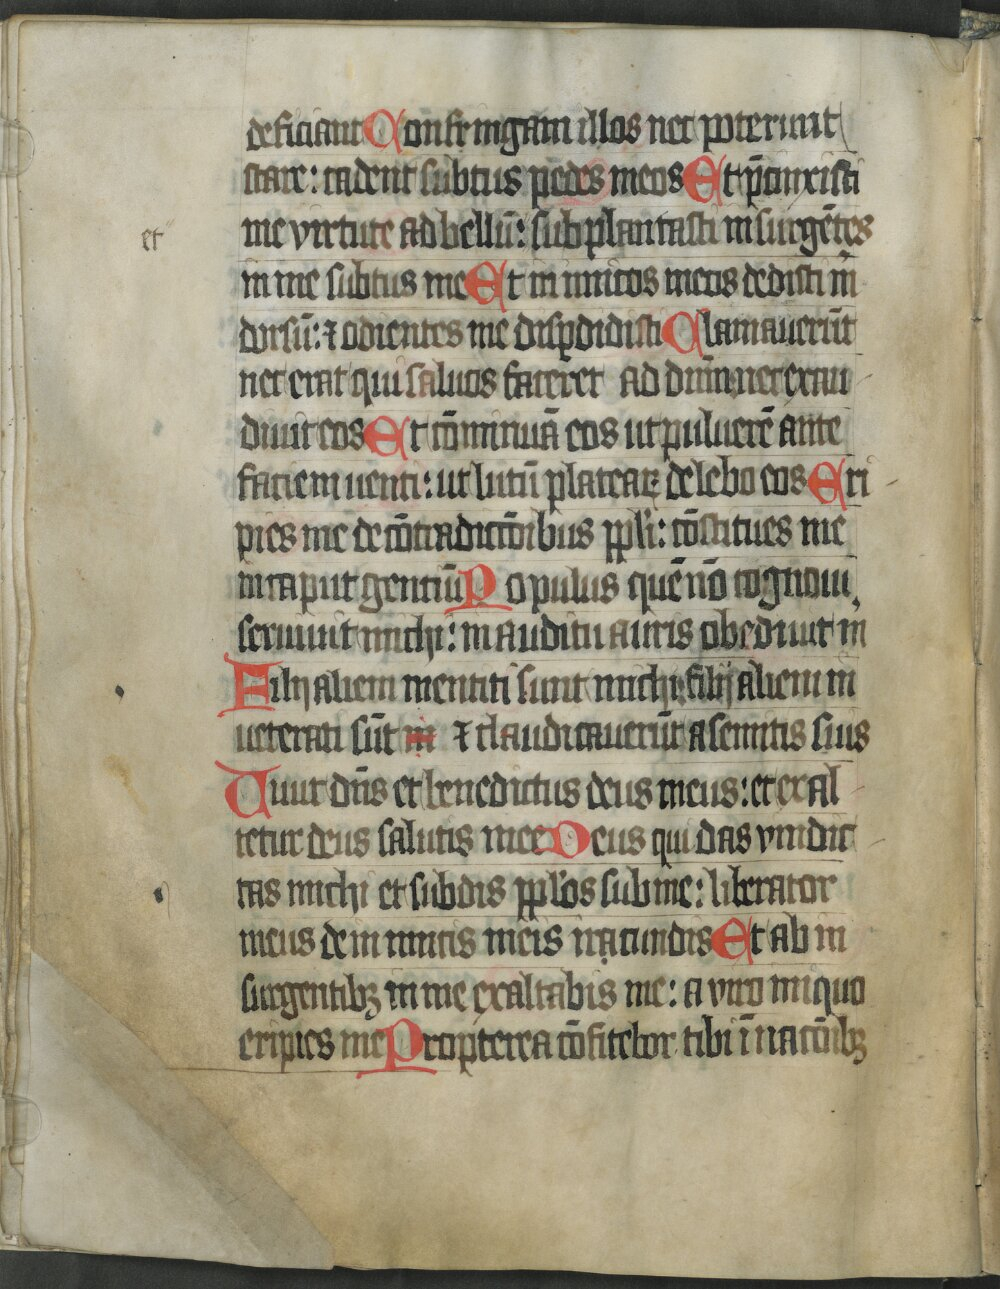 deficiant Confringam illos nec poterunt
stare: cadent subtus pedes meos Et p̄cinxisti
me virtute ad bellū: subplantasti insurgētes
et
in me subtus me Et inimicos meos dedisti m̄
dorsū: ⁊ odientes me disꝑdidisti Clamauerūt
nec erat qui saluos faceret ad dūm nec exau
diuit eos Et cōminuā eos ut puluerē ante
faciem uenti: ut lutū plateaꝝ delebo eos Eri
pies me de cōtradictōibus ppl'i: cōstitues me
in caput gentiū Populus quē nō cognoui
seruiuit michi: in auditu auris obediuit m̄
Filij alieni mentiti sunt michi: filij alieni in
ueterati sūt ⁊ claudicauerūt a semitis suis
Viuit dn̄s et benedictus deus meus: et exal
tetur deus salutis mee Deus qui das vindic
tas michi et subdis ppl'os sub me: liberator
meus de inimicis meis iracundis Et ab in
surgentibꝫ in me exaltabis me: a viro iniquo
eripies me Propterea cōfitebor tibi ī nacōibꝫ